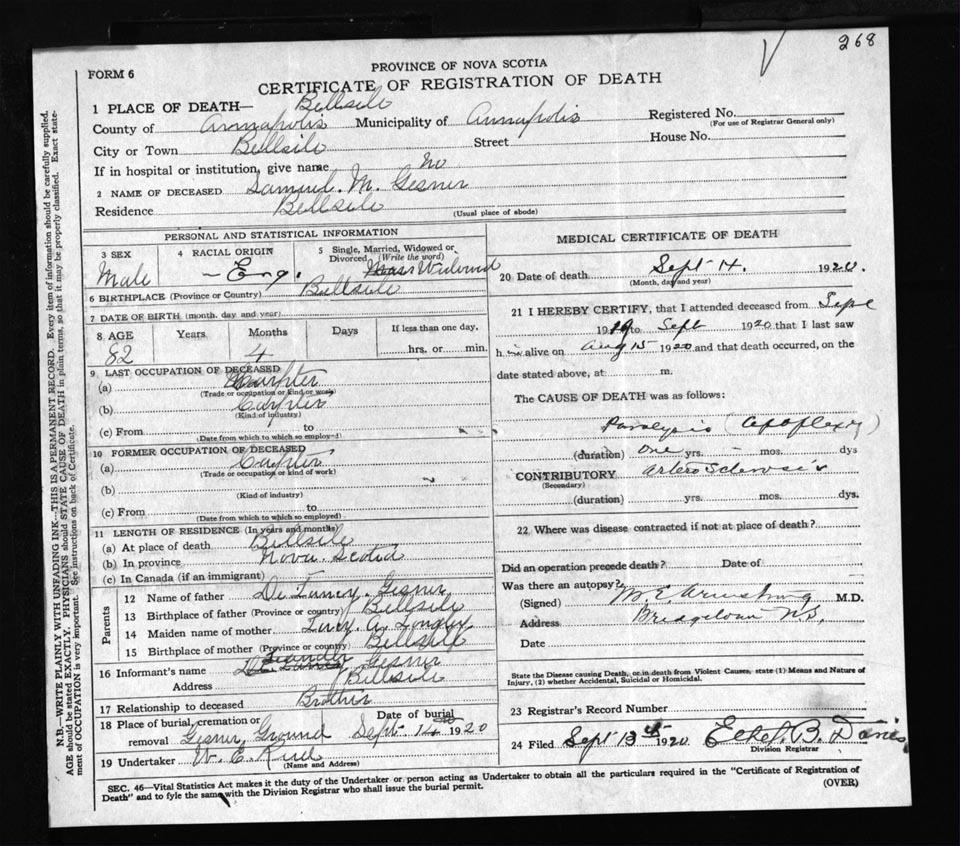 268
PROVINCE OF NOVA SCOTIA
FORM 6
CERTIFICATE OF REGISTRATION OF DEATH
1 PLACE OF DEATH— Bellisle
County of Annapolis Municipality of Annapolis Registered No.
(For use of Registrar General only)
City or Town Bellisle Street House No.
If in hospital or institution, give name no
2 NAME OF DECEASED Samuel. M. Gesner
Residence Bellisle (Usual place of abode)
PERSONAL AND STATISTICAL INFORMATION
3 SEX 4 RACIAL ORIGIN 5 Single, Married, Widowed or
Divorced (Write the word)
Male Eng.
6 BIRTHPLACE (Province or Country) Bellisle
7 DATE OF BIRTH (month, day and year)
8 AGE Years Months Days If less than one day,
82 4 hrs. or min.
9 LAST OCCUPATION OF DECEASED
(a)
(Trade or occupation or kind of work)
(b)
(Kind of industry)
(c) From to
(Date from which to which so employed)
10 FORMER OCCUPATION OF DECEASED
(a)
(Trade or occupation or kind of work)
(b)
(Kind of industry)
(c) From to
(Date from which to which so employed)
11 LENGTH OF RESIDENCE (In years and months)
(a) At place of death Bellisle
(b) In province Nova. Scotia
(c) In Canada (if an immigrant)
Parents
12 Name of father Gesner
13 Birthplace of father (Province or country) Bellisle
14 Maiden name of mother A.
15 Birthplace of mother (Province or country) Bellisle
16 Informant's name Gesner
Address Bellisle
17 Relationship to deceased Brother
18 Place of burial, cremation or Date of burial
removal Gesner Ground Sept. 1920
19 Undertaker W. E.
(Name and Address)
MEDICAL CERTIFICATE OF DEATH
20 Date of death Sept 1920.
(Month, day and year)
21 I HEREBY CERTIFY, that I attended deceased from Sept
19 to Sept 1920 that I last saw
h im alive on Aug 15 1920 and that death occurred, on the
date stated above, at m.
The CAUSE OF DEATH was as follows:
Paralysis (Apoplexy)
(duration) One yrs. mos. dys
CONTRIBUTORY Arterio Sclerosis
(Secondary)
(duration) yrs. mos. dys.
22 Where was disease contracted if not at place of death?
Did an operation precede death? Date of
Was there an autopsy?
(Signed) M. E. Armstrong M.D.
Address Bridgetown N.S.
Date
State the Disease causing Death, or in death from Violent Causes, state (1) Means and Nature of
Injury, (2) whether Accidental, Suicidal or Homicidal.
23 Registrar's Record Number
24 Filed Sept 1920 Ethel. B. Davies
Division Registrar
SEC. 46—Vital Statistics Act makes it the duty of the Undertaker or person acting as Undertaker to obtain all the particulars required in the "Certificate of Registration of
Death" and to fyle the same with the Division Registrar who shall issue the burial permit.
(OVER)
N.B.—WRITE PLAINLY WITH UNFADING INK—THIS IS A PERMANENT RECORD. Every item of information should be carefully supplied.
AGE should be stated EXACTLY. PHYSICIANS should STATE CAUSE OF DEATH in plain terms, so that it may be properly classified. Exact state-
ment of OCCUPATION is very important. See instructions on back of Certificate.